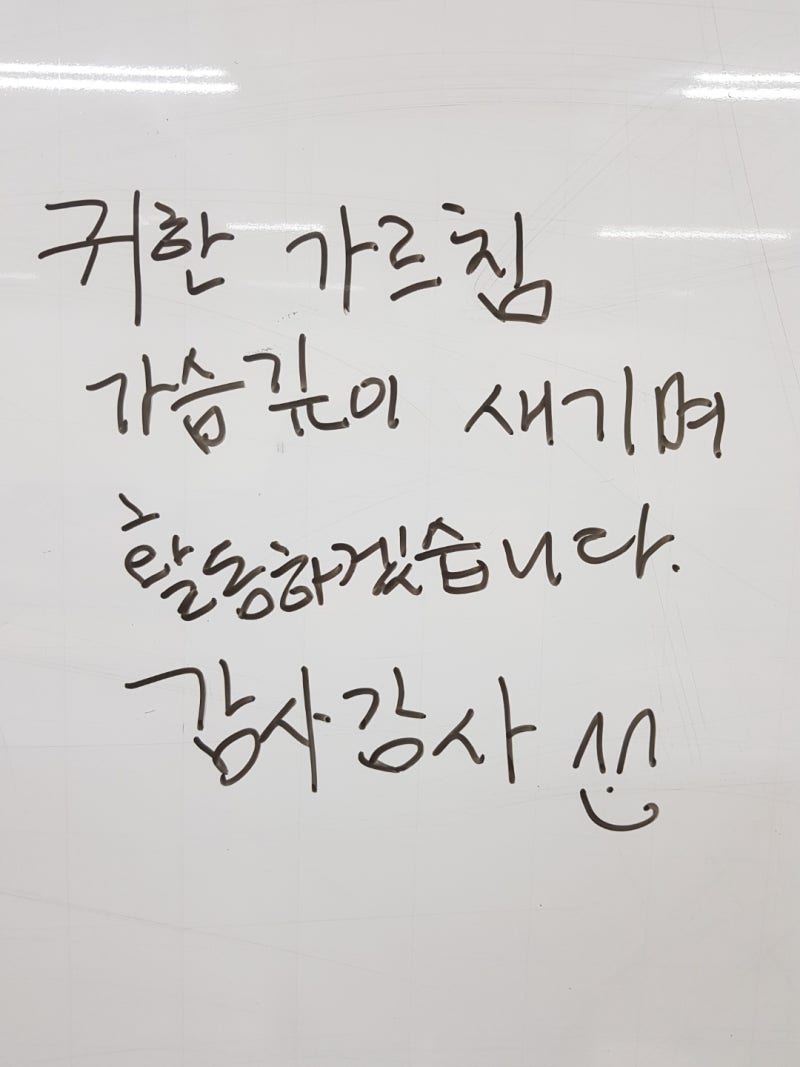 귀한 가르침
가슴깊이 새기며
활동하겠습니다.
감사감사